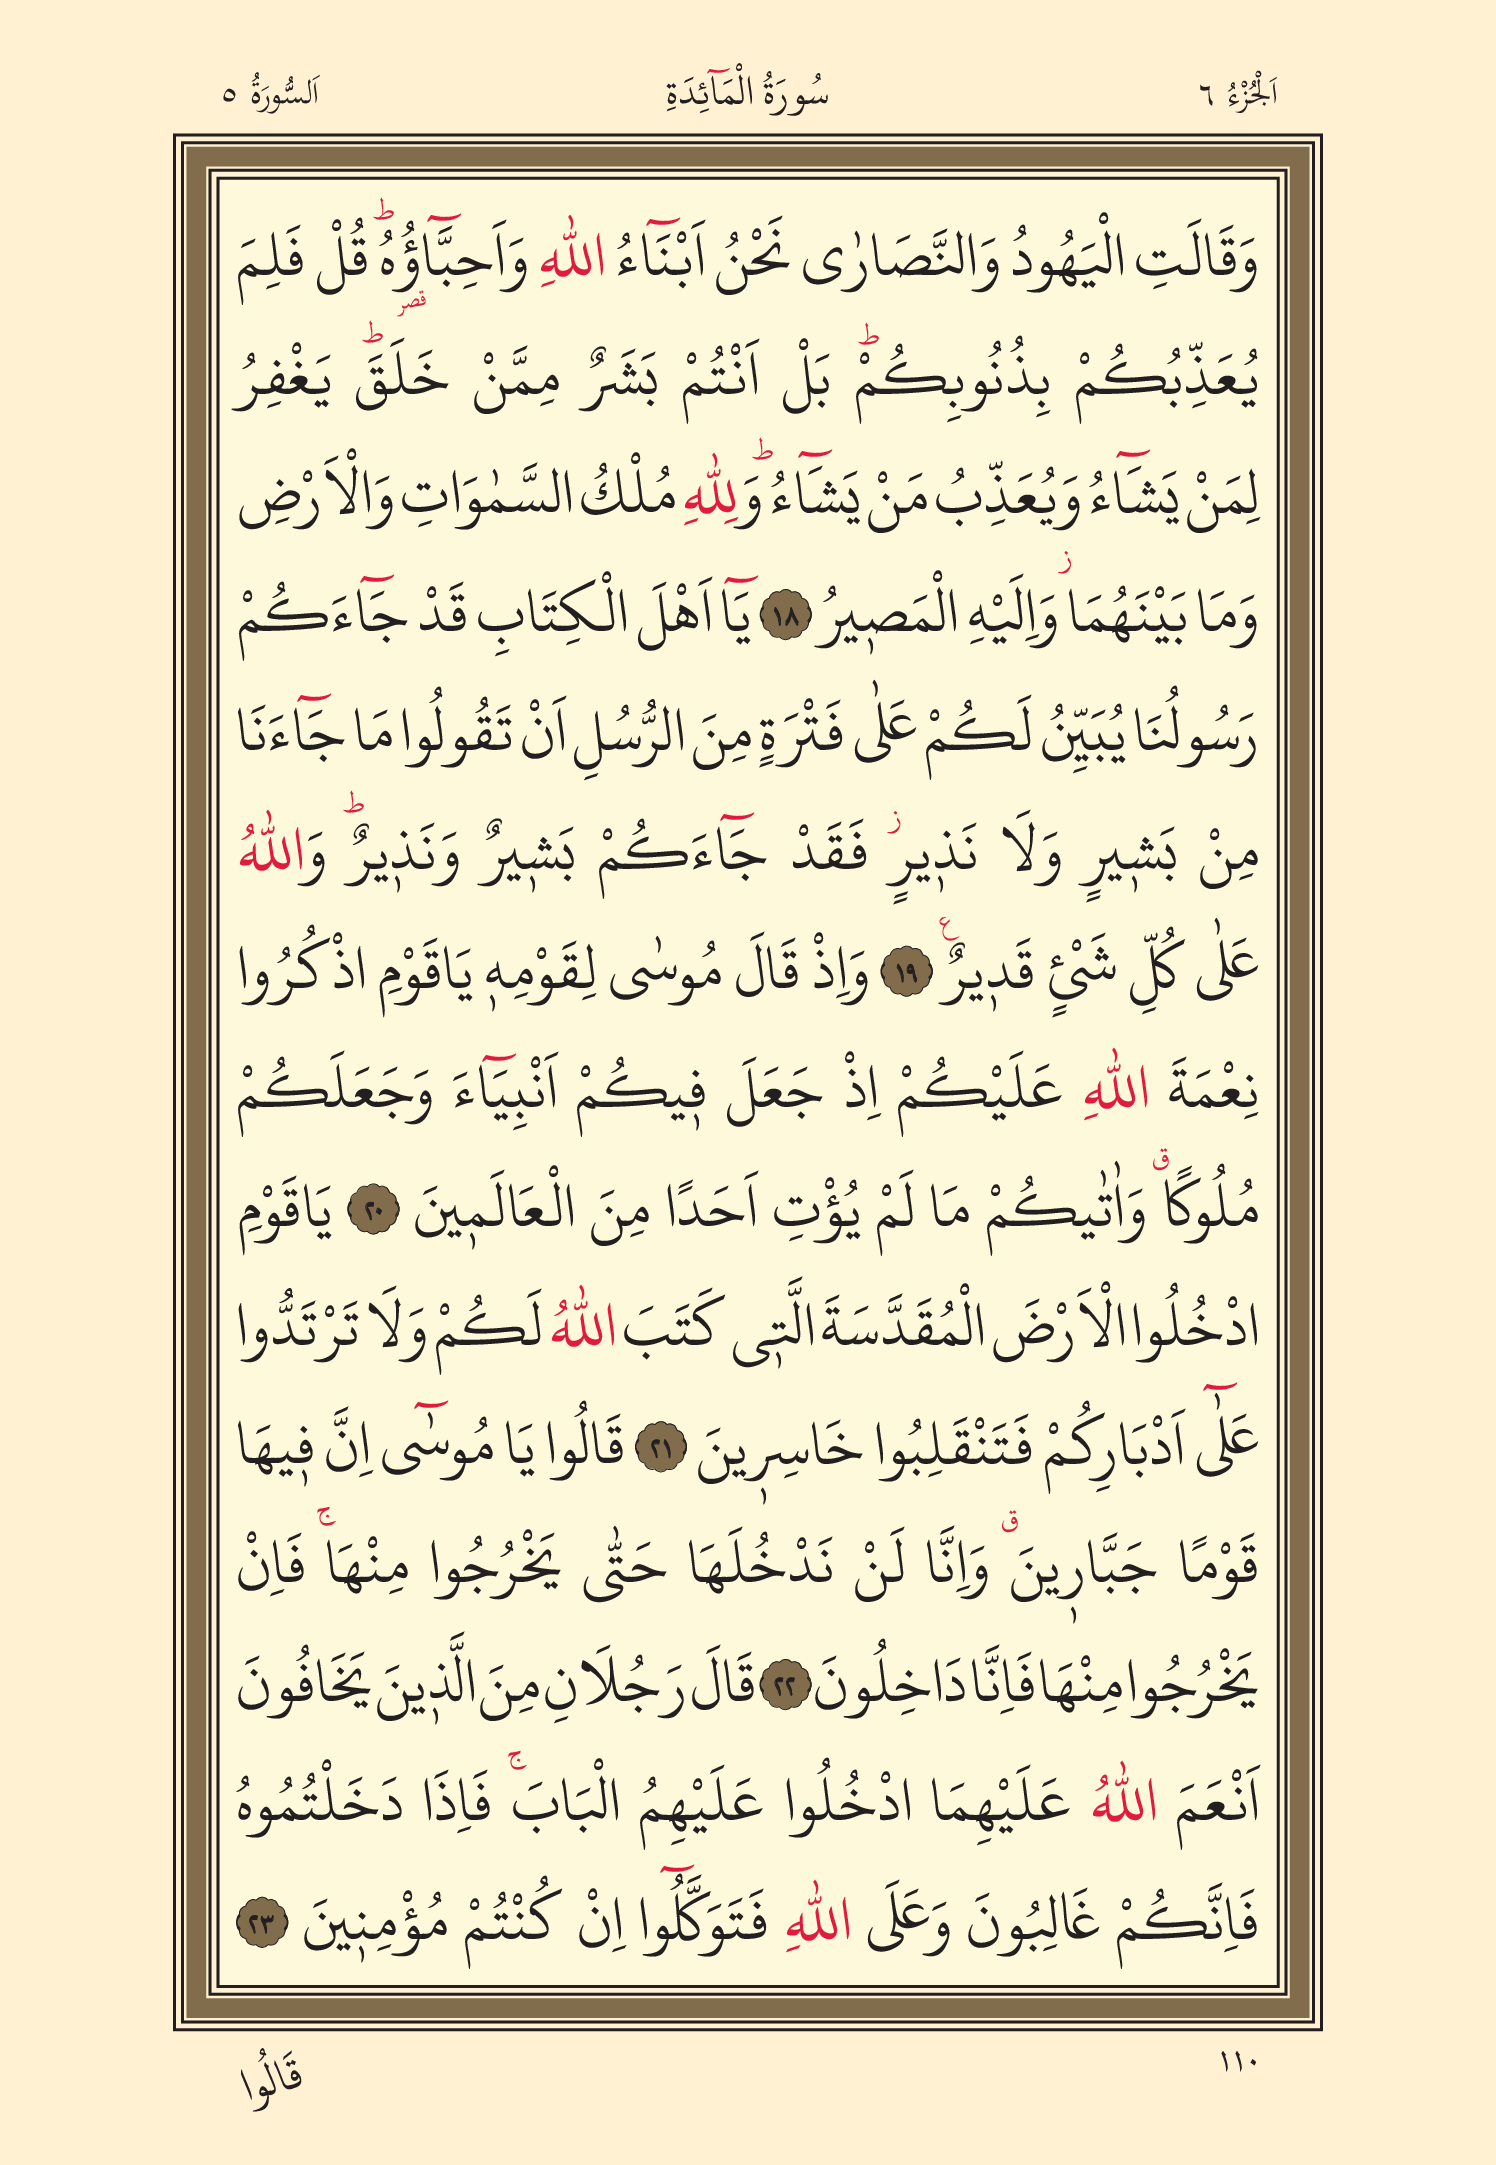 اَلْجُزْءُ ٦
سُورَةُ الْمَٓائِدَةِ
اَلسُّورَةُ ٥
وَقَالَتِ الْيَهُودُ وَالنَّصَارٰى نَحْنُ اَبْنَٓاءُ اللّٰهِ وَاَحِبَّٓاؤُ۬هُۜ قُلْ فَلِمَ
قصر
يُعَذِّبُكُمْ بِذُنُوبِكُمْۜ بَلْ اَنْتُمْ بَشَرٌ مِمَّنْ خَلَقَۜ يَغْفِرُ
لِمَنْ يَشَٓاءُ وَيُعَذِّبُ مَنْ يَشَٓاءُۜ وَلِلّٰهِ مُلْكُ السَّمٰوَاتِ وَالْاَرْضِ
وَمَا بَيْنَهُمَاۘ وَاِلَيْهِ الْمَصٖيرُ ﴿١٨﴾ يَٓا اَهْلَ الْكِتَابِ قَدْ جَٓاءَكُمْ
رَسُولُنَا يُبَيِّنُ لَكُمْ عَلٰى فَتْرَةٍ مِنَ الرُّسُلِ اَنْ تَقُولُوا مَا جَٓاءَنَا
مِنْ بَشٖيرٍ وَلَا نَذٖيرٍۘ فَقَدْ جَٓاءَكُمْ بَشٖيرٌ وَنَذٖيرٌۜ وَاللّٰهُ
عَلٰى كُلِّ شَيْئٍ قَدٖيرٌࣖ ﴿١٩﴾ وَاِذْ قَالَ مُوسٰى لِقَوْمِهٖ يَاقَوْمِ اذْكُرُوا
نِعْمَةَ اللّٰهِ عَلَيْكُمْ اِذْ جَعَلَ فٖيكُمْ اَنْبِيَٓاءَ وَجَعَلَكُمْ
مُلُوكًاࣗ وَاٰتٰيكُمْ مَا لَمْ يُؤْتِ اَحَدًا مِنَ الْعَالَمٖينَ ﴿٢٠﴾ يَاقَوْمِ
ادْخُلُوا الْاَرْضَ الْمُقَدَّسَةَ الَّتٖى كَتَبَ اللّٰهُ لَكُمْ وَلَا تَرْتَدُّوا
عَلٰٓى اَدْبَارِكُمْ فَتَنْقَلِبُوا خَاسِرٖينَ ﴿٢١﴾ قَالُوا يَا مُوسٰٓى اِنَّ فٖيهَا
قَوْمًا جَبَّارٖينَࣗ وَاِنَّا لَنْ نَدْخُلَهَا حَتّٰى يَخْرُجُوا مِنْهَاۚ فَاِنْ
يَخْرُجُوا مِنْهَا فَاِنَّا دَاخِلُونَ ﴿٢٢﴾ قَالَ رَجُلَانِ مِنَ الَّذٖينَ يَخَافُونَ
اَنْعَمَ اللّٰهُ عَلَيْهِمَا ادْخُلُوا عَلَيْهِمُ الْبَابَۚ فَاِذَا دَخَلْتُمُوهُ
فَاِنَّكُمْ غَالِبُونَ وَعَلَى اللّٰهِ فَتَوَكَّلُٓوا اِنْ كُنْتُمْ مُؤْمِنٖينَ ﴿٢٣﴾
١١٠
قَالُوا